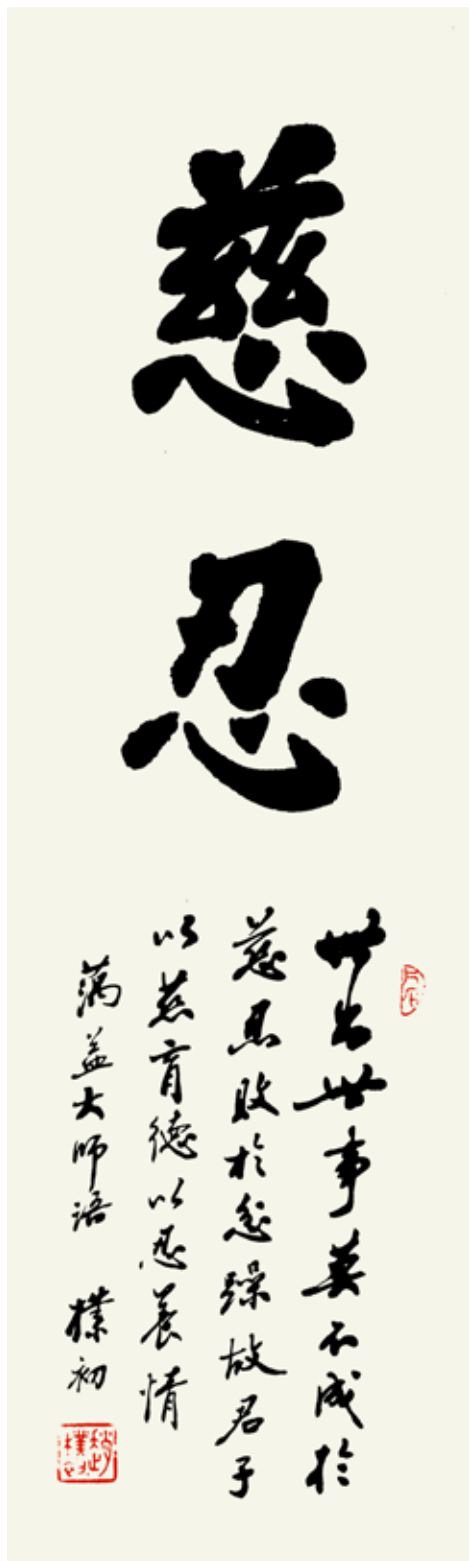 慈忍
世出世事莫不成於
慈忍敗於忿躁故君子
以慈育德以忍養情
蕅益大師語 樸初